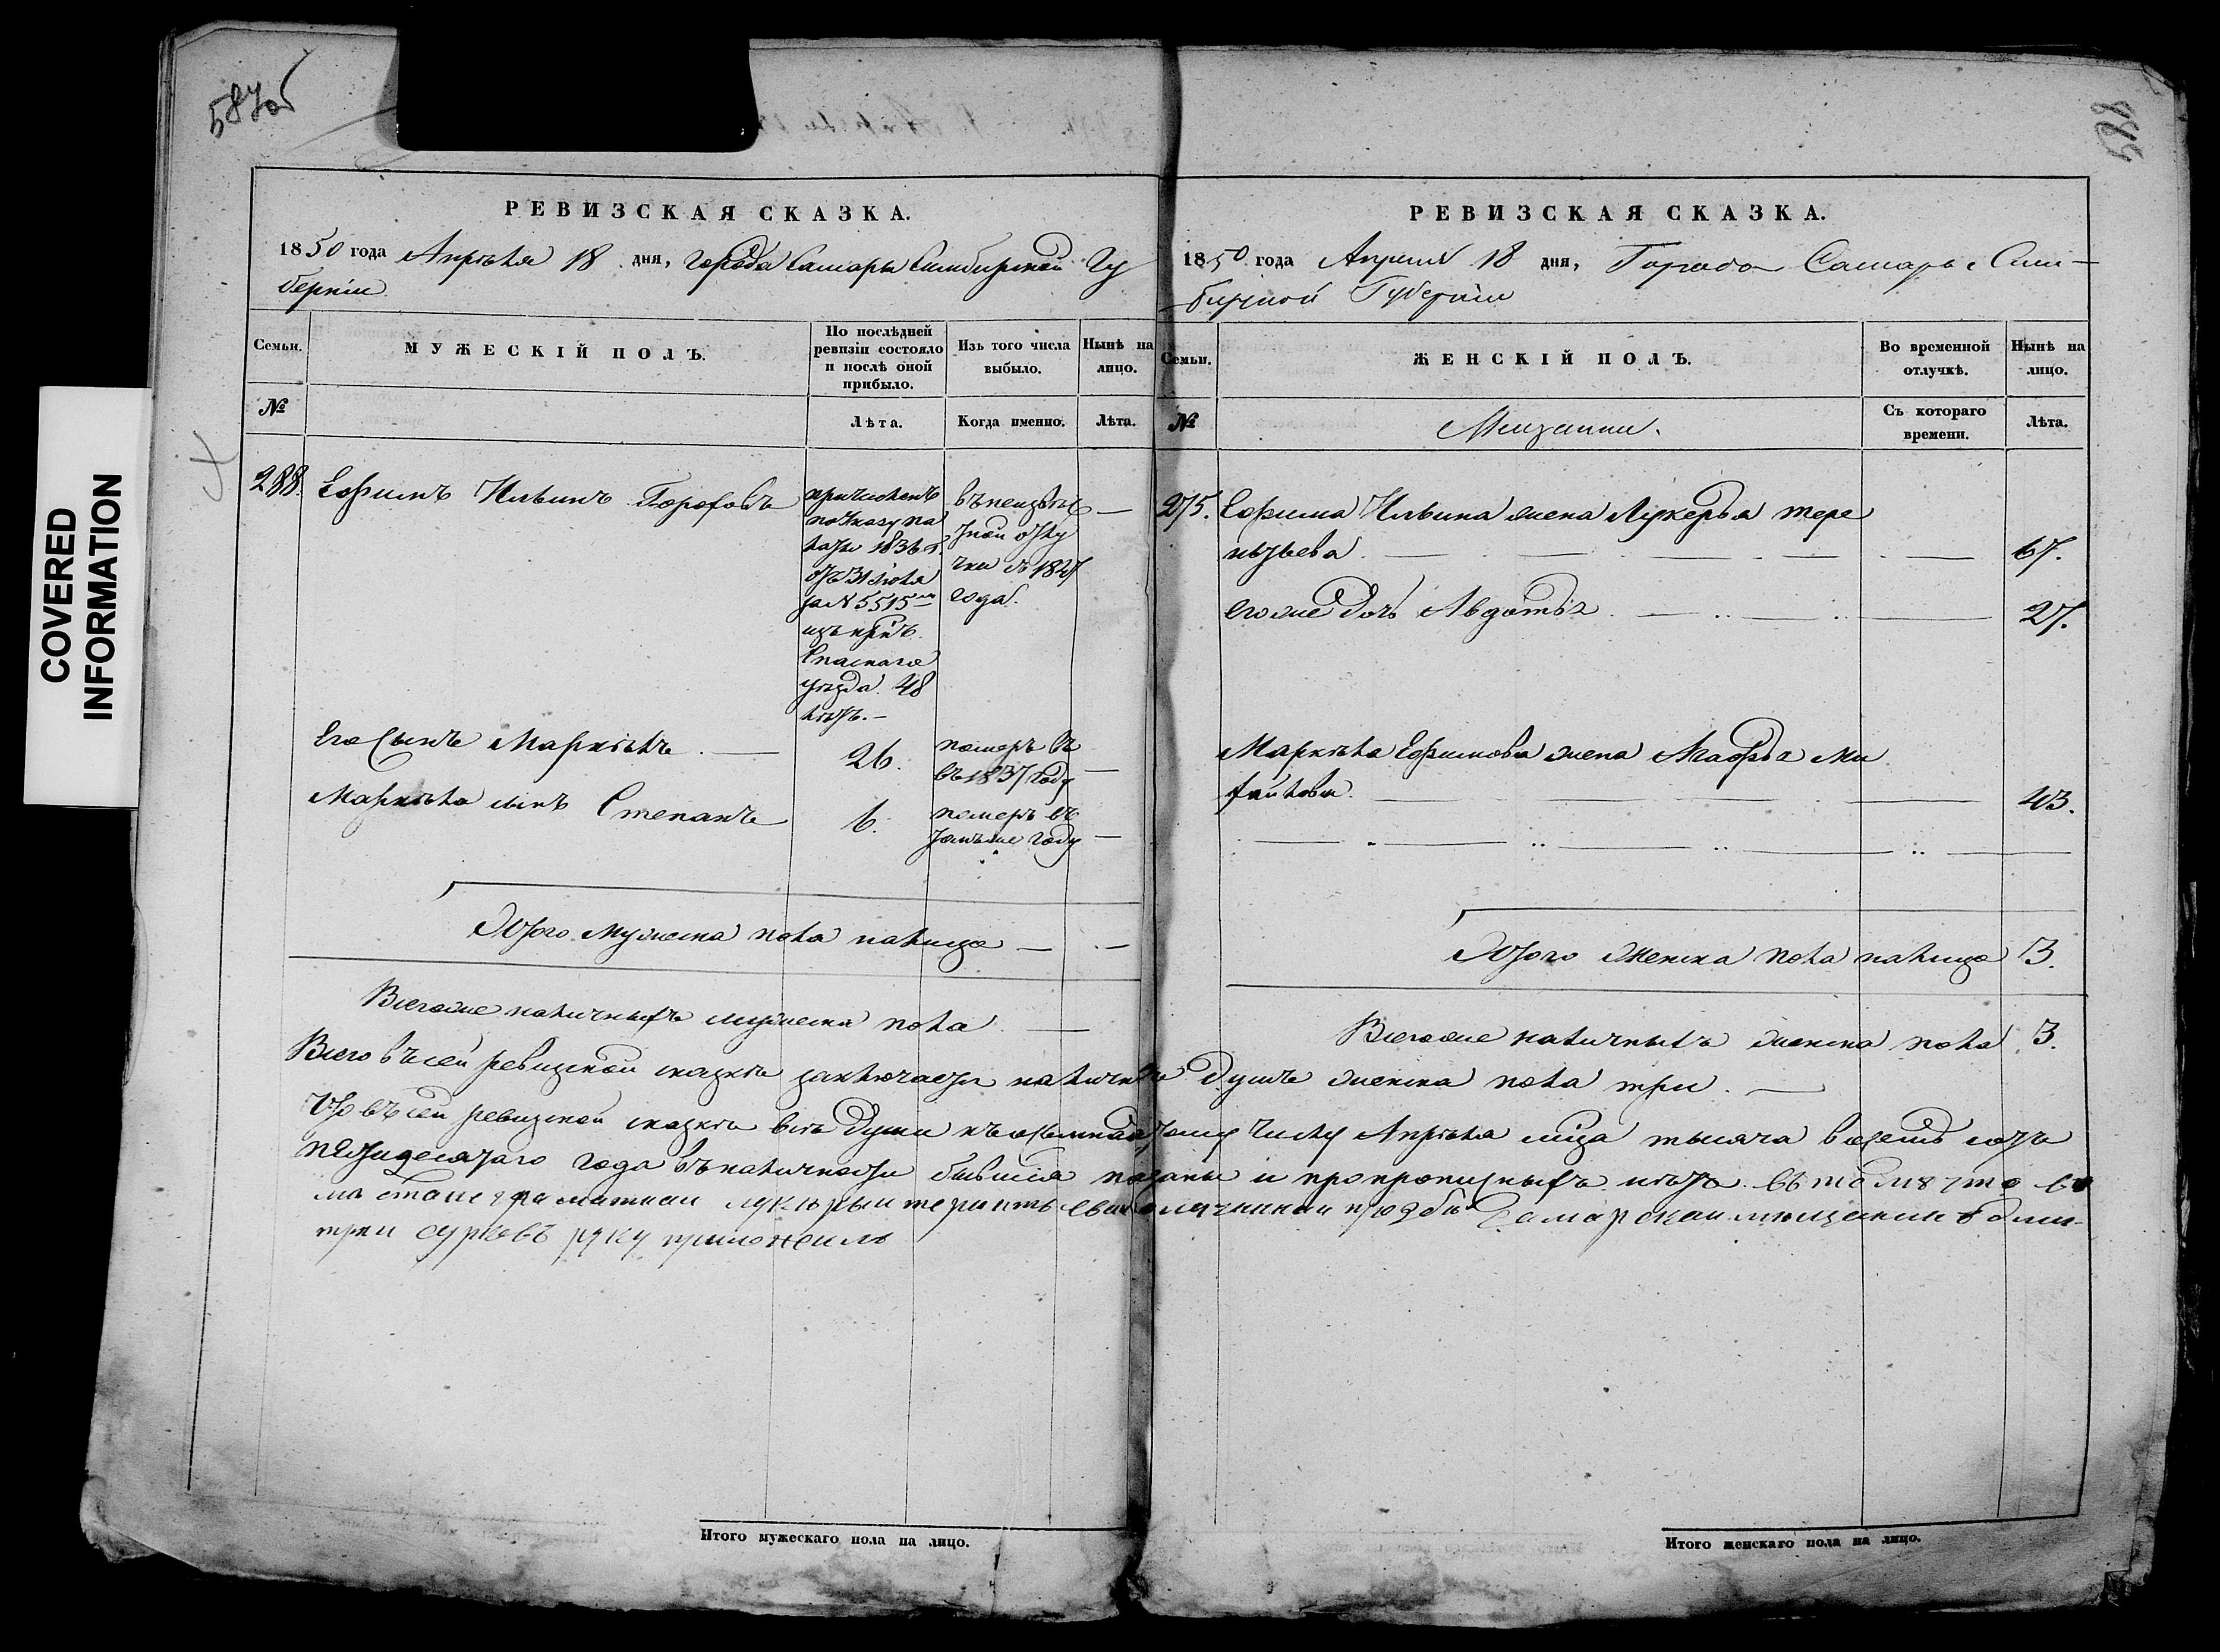 587об
588
COVERED
INFORMATION
РЕВИЗСКАЯ СКАЗКА.
1850 года Апрѣля 18 дня, города Самары Симбирской Гу
берніи
Семьи.
МУЖЕСКІЙ ПОЛЪ.
По послѣдней
ревизіи состояло
и послѣ оной
прибыло.
Изъ того числа
выбыло.
Нынѣ на
лицо.
№
Лѣта.
Когда именно.
Лѣта.
288. Ефимъ Ильинъ Гороховъ
причисленъ
по Указу па
латы 1836 г.
отъ 31 Іюля
за № 5515м
изъ
Спаскаго
уѣзда 48
лѣтъ.—
въ неизвѣс
тной отлу
чки съ 1847
года.
—
Его сынъ Маркѣлъ — 26. померъ въ
въ 1837 году —
Маркѣла сынъ Степанъ 6. померъ въ
томъ же году —
Итого мужеска пола налицо — —
Всего же наличныхъ мужеска пола —
РЕВИЗСКАЯ СКАЗКА.
1850 года Апреля 18 дня, Города Самары Сим-
бирской Губерніи
Семьи.
ЖЕНСКІЙ ПОЛЪ.
Во временной
отлучкѣ.
Нынѣ на
лицо.
№
Мещане.
Съ котораго
времени.
Лѣта.
275. Ефима Ильина жена Лукерья тере
нтьева 67.
его же дочь Авдотья 27.
Маркѣла Ефимова жена Мавра Ми
хайлова 43.
Итого Женска пола налицо 3.
Всего же наличныхъ женска пола 3.
Всего въ сей ревизской сказкѣ заключается наличныхъ душъ женска пола три. —
Что въ сей ревизской сказкѣ всѣ души къ осьмнадцатому числу Апрѣля мѣца тысяча восемь сотъ
пятидесятаго года въ наличности бывшія показаны и прописныхъ нѣтъ въ томъ
лукерьи терентьевой прозбѣ Самарской мещанинъ дми-
трей сурковъ руку приложилъ
Итого мужескаго пола на лицо.
Итого женскаго пола на лицо.